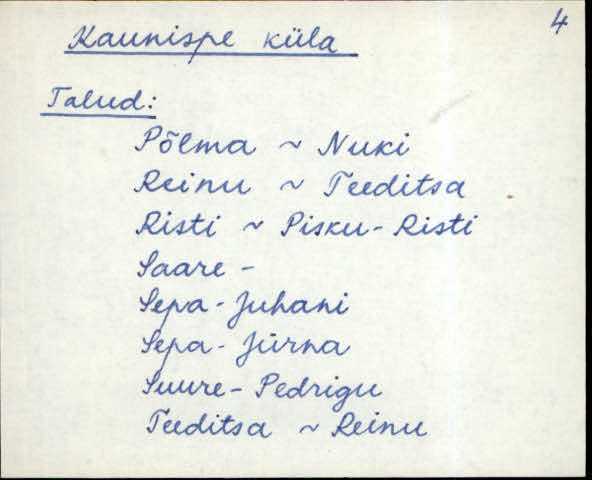 4
Kaunispe küla
Talud:
Põlma ~ Nuki
Reinu ~ Teeditsa
Risti ~ Pisku-Risti
Saare -
Sepa-Juhani
Sepa-Jürna
Suure-Pedrigu
Teeditsa ~ Reinu